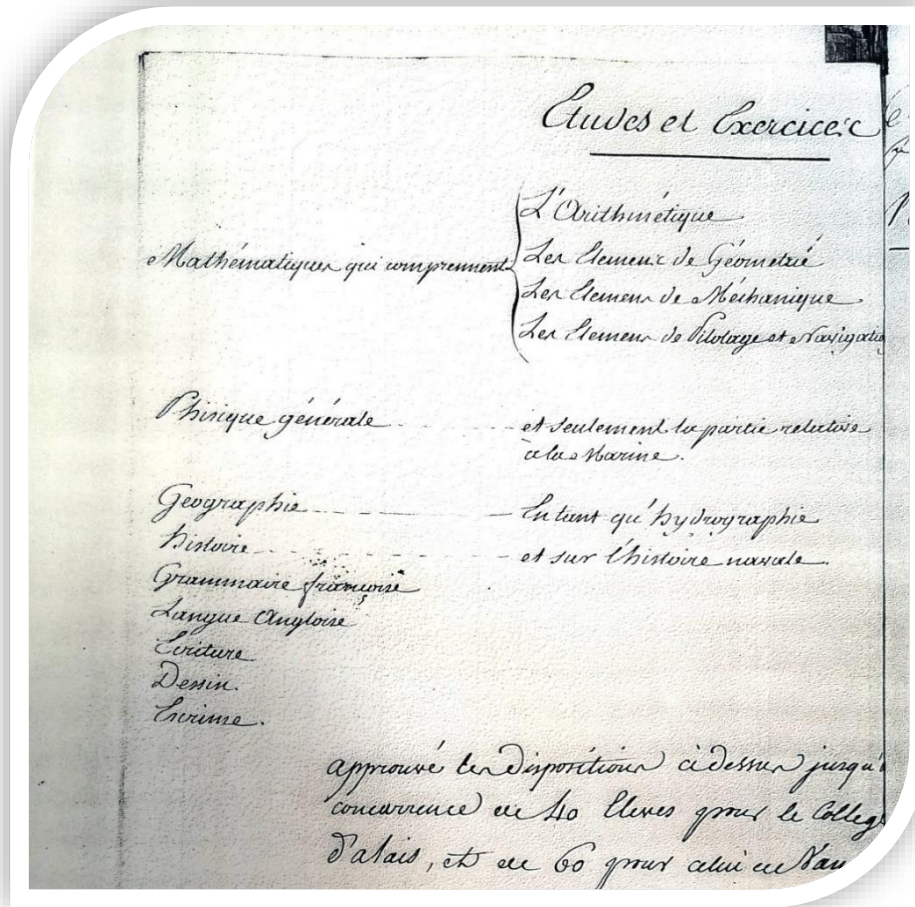 Etudes et Exercices
Mathématiques qui comprennent
L'Arithmétique
Les Elemens de Géometrie
Les Elemens de Méchanique
Les Elemens de Pilotage et Navigatio
Phisique générale et seulement la partie relative
à la Marine.
Geographie En tant qu'hydrographie
histoire et sur l'histoire navale.
Grammaire françoise
Langue Angloise
Ecriture
Dessin.
Escrime.
approuvé les dispositions cidessus jusqu'
concurrence de 40 Eleves pour le Colleg
d'alais, et de 60 pour celui de Van